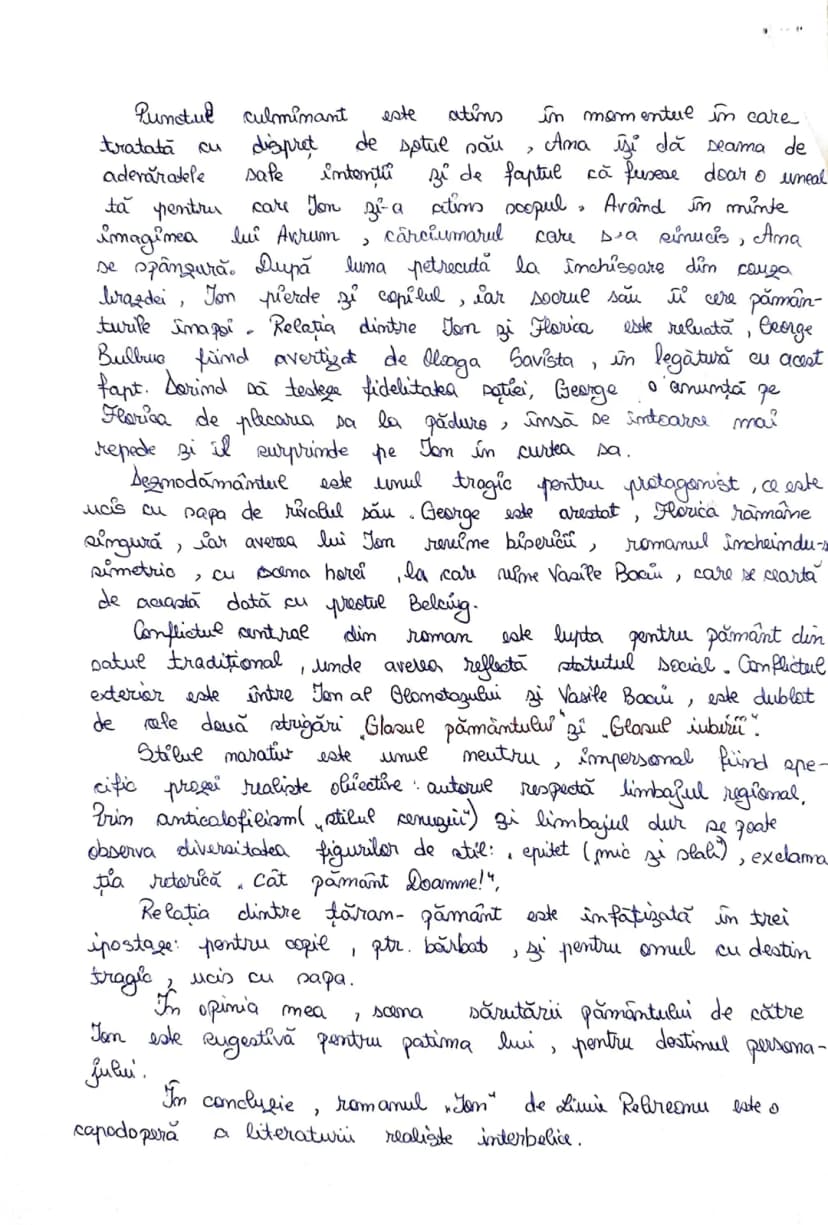 Punctul culminant este atins în momentul în care
tratată cu dispreț de soțul său, Ana își dă seama de
adevăratele sale intenții și de faptul că fusese doar o uneal
tă pentru care Ion și-a atins scopul. Având în minte
imaginea lui Avrum, cârciumarul care s-a sinucis, Ana
se spânzură. După luna petrecută la închisoare din cauza
brazdei, Ion pierde și copilul, iar socrul său îi cere pămân-
turile înapoi. Relația dintre Ion și Florica este reluată, George
Bulbuc fiind avertizat de Oloaga Savista, în legătură cu acest
fapt. Dorind să testeze fidelitatea soției, George o anunță pe
Florica de plecarea sa la pădure, însă se întoarce mai
repede și îl surprinde pe Ion în curtea sa.
Deznodământul este unul tragic pentru protagonist, ce este
ucis cu sapa de rivalul său. George este arestat, Florica rămâne
singură, iar averea lui Ion revine bisericii, romanul încheindu-s
simetric, cu scena horei, la care vine Vasile Baciu, care se ceartă
de această dată cu preotul Belciug.
Conflictul central din roman este lupta pentru pământ din
satul tradițional, unde averea reflectă statutul social. Conflictul
exterior este între Ion al Glanetașului și Vasile Baciu, este dublat
de cele două strigări „Glasul pământului" și „Glasul iubirii".
Stilul narativ este unul neutru, impersonal fiind spe-
cific prozei realiste obiective: autorul respectă limbajul regional.
Prin anticalofilism („stilul cenușiu") și limbajul dur se poate
observa diversitatea figurilor de stil: epitet (mic și slab), exclama
ția retorică „Cât pământ Doamne!",
Relația dintre țăran- pământ este înfățișată în trei
ipostaze: pentru copil, ptr. bărbat, și pentru omul cu destin
tragic, ucis cu sapa.
În opinia mea, scena sărutării pământului de către
Ion este sugestivă pentru patima lui, pentru destinul persona-
jului.
În concluzie, romanul „Ion" de Liviu Rebreanu este o
capodoperă a literaturii realiste interbelice.